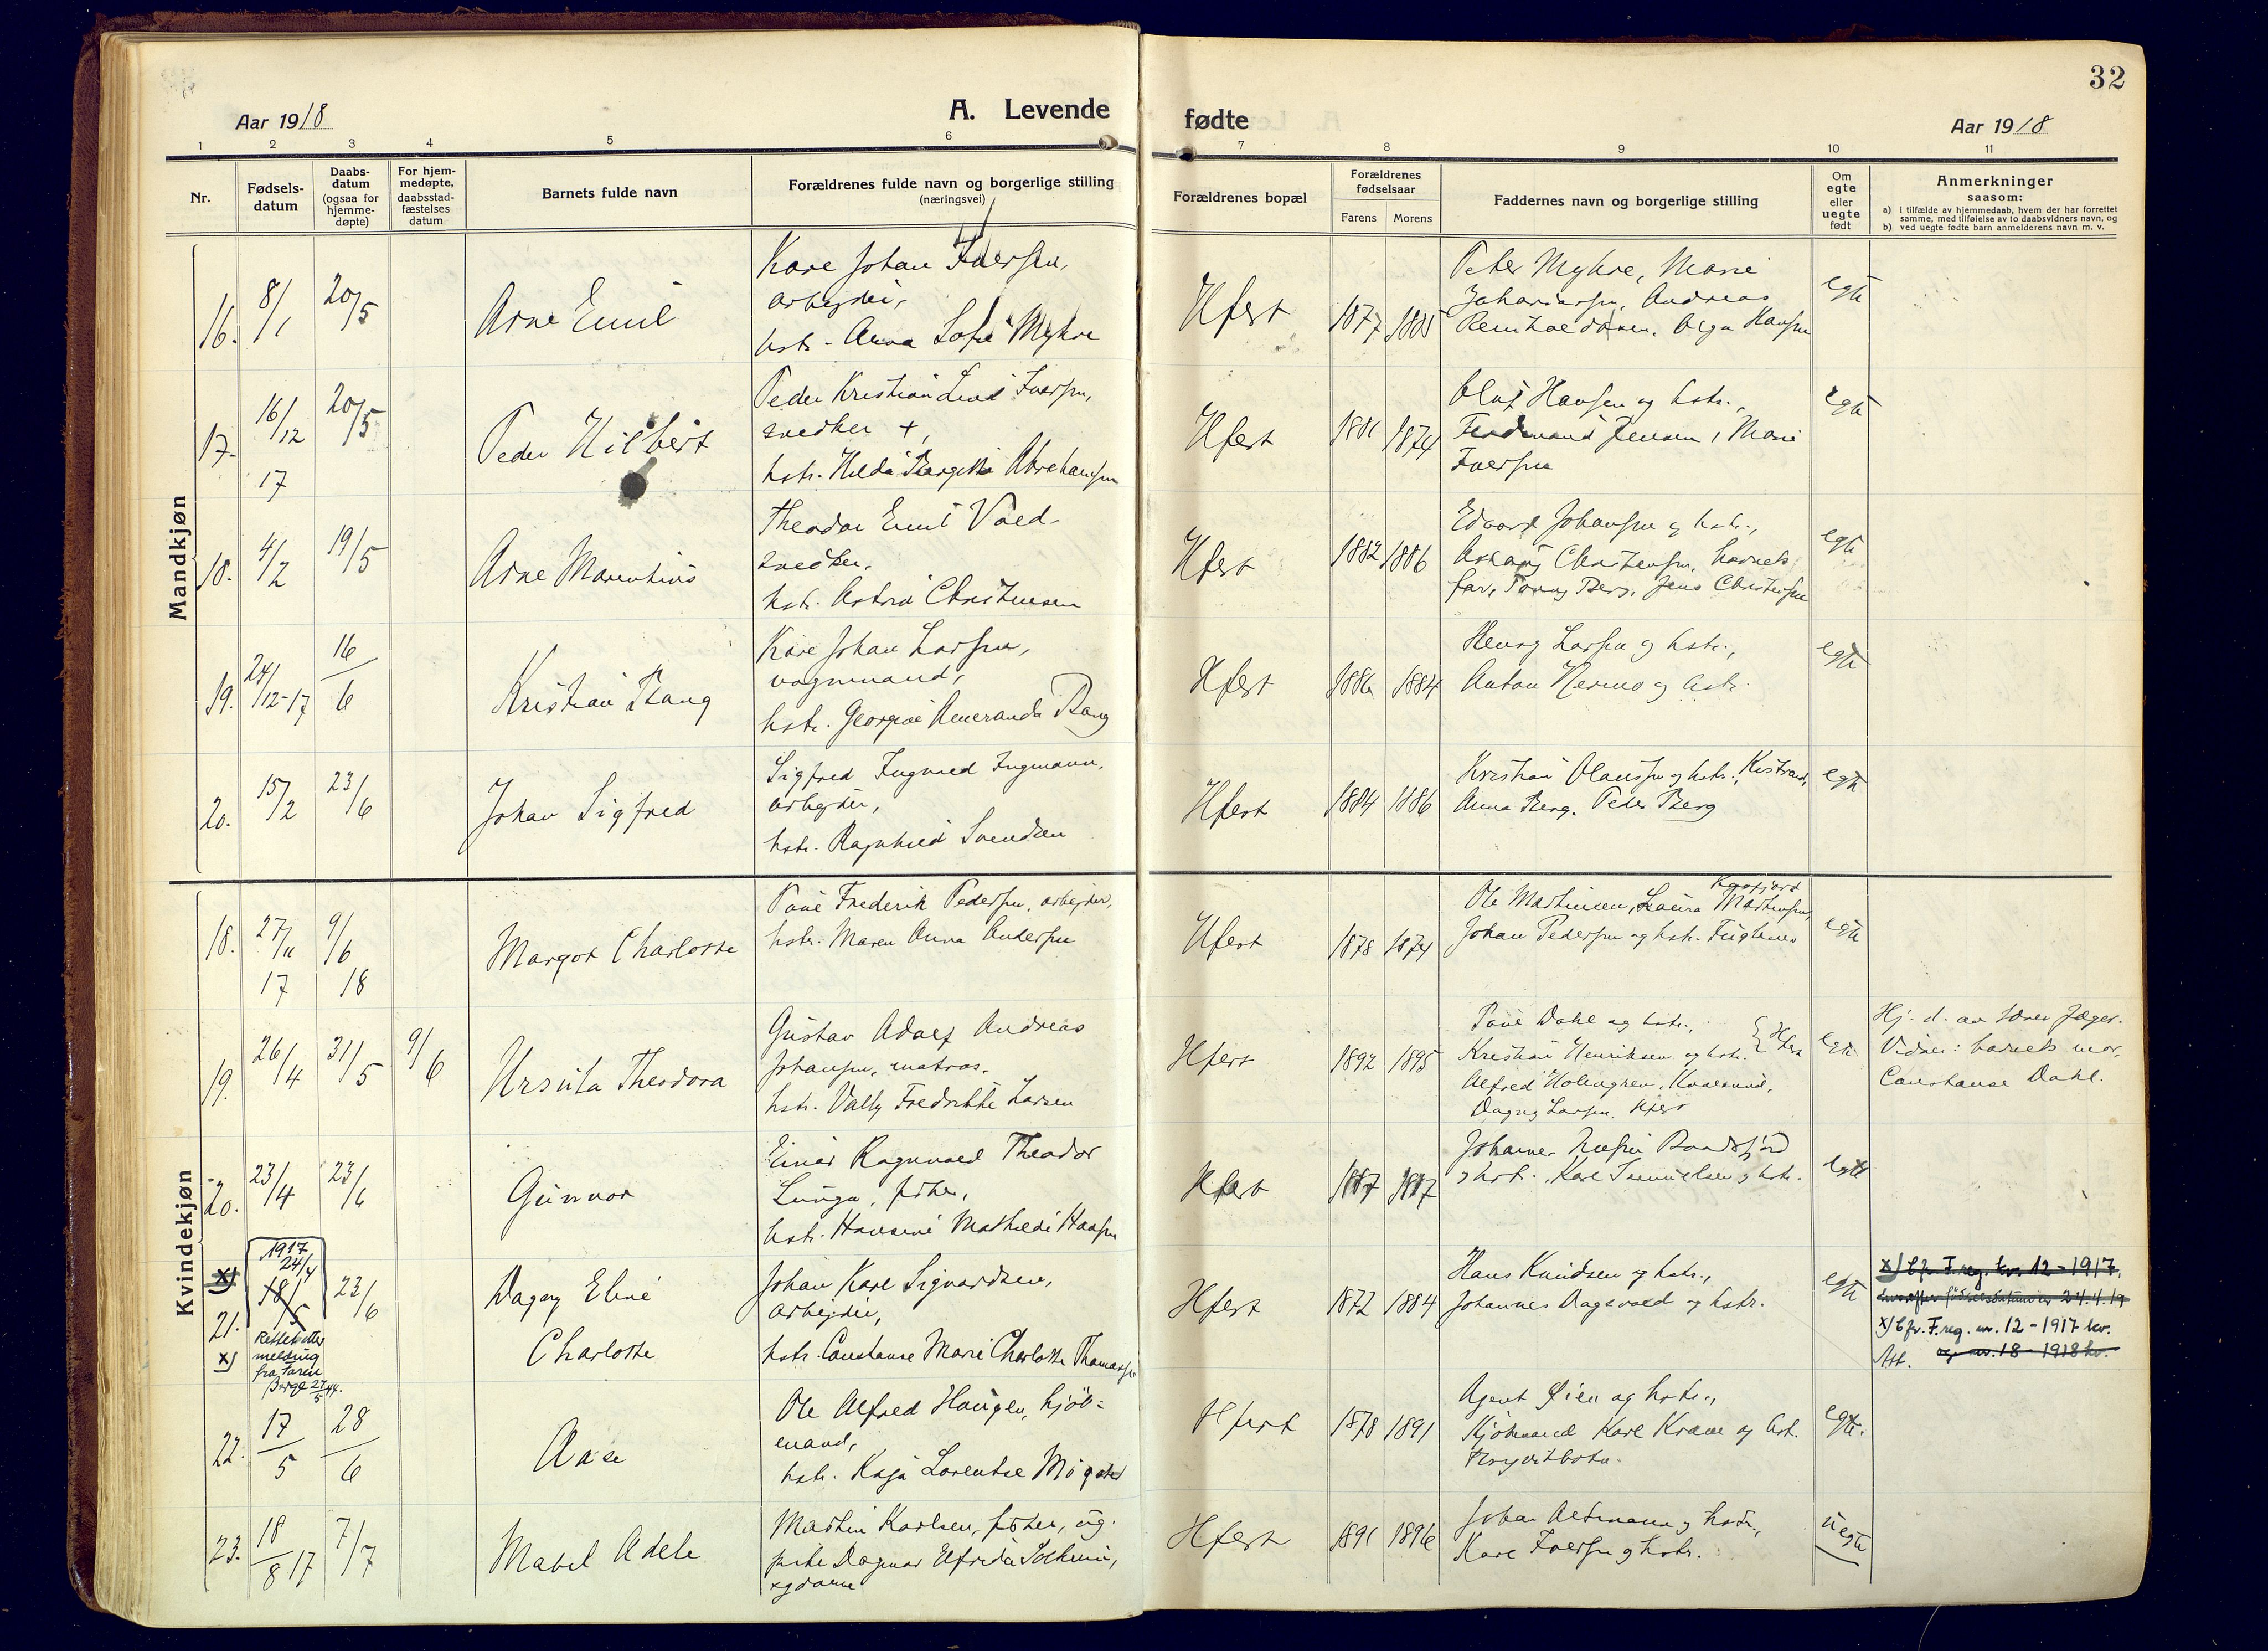 32
Aar 1918
A. Levende fødte
Aar 1918
1 2 3 4 5 6 7 8 9 10 11
Nr.
Fødsels-
datum
Daabs-
datum
(ogsaa for
hjemme-
døpte)
For hjem-
medøpte,
daabsstad-
fæstelses
datum
Barnets fulde navn
Forældrenes fulde navn og borgerlige stilling
(næringsvei)
Forældrenes bopæl
Forældrenes
fødselsaar
Farens Morens
Faddernes navn og borgerlige stilling
Om
egte
eller
uegte
født
Anmerkninger
saasom:
a) i tilfælde av hjemmedaab, hvem der har forrettet
samme, med tilføielse av to daabsvidners navn, og
b) ved uegte fødte barn anmelderens navn m. v.
Mandkjøn
16. 8/1 20/5 Arne Emil
Karl Johan Iversen,
arbeider,
hstr. Anna Sofie Myhre
Hfest 1877 1885
Peter Myhre, Marie
Johansen, Andreas
Reinholdtsen, Olga Hansen
egte
17. 16/12 17 20/5 Peder Hilbert
Peder Kristian Lind Iversen,
snedker +,
hstr. Hilda Bergitte Abrahamsen
Hfest 1881 1874
Oluf Hansen og hstr.,
Ferdinand Jensen, Marie
Iversen
egte
18. 4/2 19/5 Arne Marentius
Theodor Emil Vold
snedker,
hstr. Astrid Christensen
Hfest 1882 1886
Edvard Johansen og hstr.,
Aslaug Christensen, barnets
far, Tomy Berg, Jens Christensen
egte
19. 24/12-17 16/6 Kristian Bang
Karl Johan Larsen,
vognmand,
hstr. Georgine Veneranda Bang
Hfest 1886 1884
Henry Larsen og hstr.,
Anton Nermo og hstr.
egte
20. 15/2 23/6 Johan Sigfred
Sigfred Ingvald Ingmann,
arbeider,
hstr. Ragnhild Svendsen
Hfest 1884 1886
Kristian Olaussen og hstr., Kistrand,
Anna Berg, Peter Berg
egte
Kvindekjøn
18. 27/11 17 9/6 18 Margot Charlotte
Povel Frederik Pedersen, arbeider,
hstr. Maren Anna Andersen
Hfest 1878 1874
Kaafjord
Ole Martinsen, Laura Martinsen,
Johan Pedersen og hstr. Fuglenes
egte
19. 26/4 31/5 9/6 Ursula Theodora
Gustav Adolf Andreas
Johansen, matros,
hstr. Vally Fredrikke Larsen
Hfest 1892 1895
Povel Dahl og hstr.,
Kristian Henriksen og hstr. } Hfest
Alfred Holmgren, Kvalsund,
Dagny Larsen, Hfest
egte
Hj. d. av Søren Jæger.
Vidner: barnets mor,
Constanse Dahl.
20. 23/4 23/6 Gunvor
Einar Ragnvald Theodor
Lunga, fisker,
hstr. Hansine Mathilde Hansen
Hfest 1887 1887
Johannes Baadsfjord
og hstr., Karl Samuelsen og hstr.
egte
x) 21. x) 1917 24/4 18/5 23/6 Dagny Eline
Charlotte
Rettet etter
melding
fra Faren
Berge 27/5 44.
Johan Karl Sigvardsen,
arbeider,
hstr. Constanse Marie Charlotte Thomassen
Hfest 1872 1884
Hans Knudsen og hstr.,
Johannes Dagsvold og hstr.
egte
x) Cfr. F.reg. kv. 12-1917,
hvorefter fødselsdatum er 24.4.19
x) Cfr. F.reg. nr. 12-1917 kv.
Att. og nr. 18-1918 kv.
22. 17/5 28/6 Aase
Ole Alfred Haugen, kjøb-
mand,
hstr. Kaja Lorentse
Hfest 1878 1891
Agent Øien og hstr.,
Kjøbmand Karl Krane og hstr.
egte.
23. 18/8 17 7/7 Mabel Adele
Martin Karlsen, fisker, ug.
pike Dagmar Elfrida
Hfest 1891 1896
Johan Altmann og hstr.,
Karl Iversen og hstr.
uegte